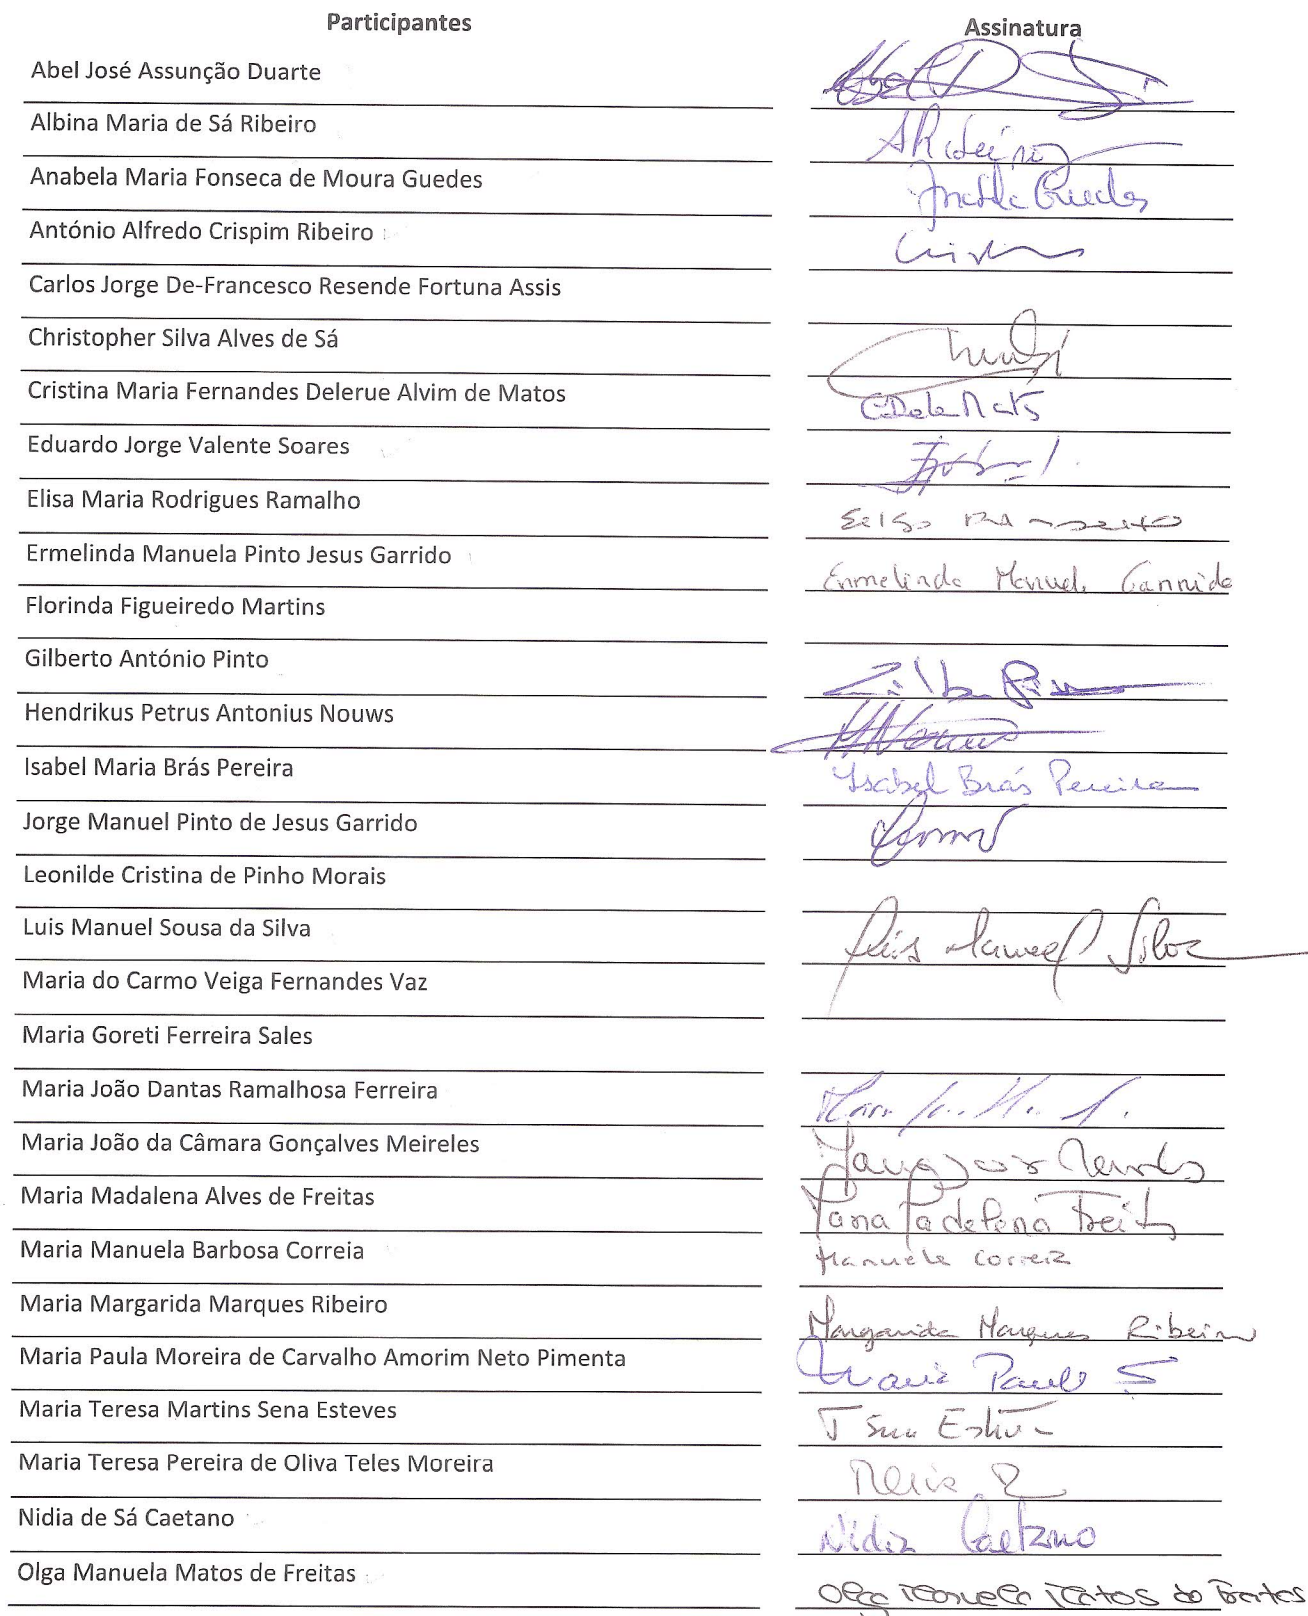 Participantes Assinatura
Abel José Assunção Duarte
Albina Maria de Sá Ribeiro ARibeiro
Anabela Maria Fonseca de Moura Guedes Anabela Guedes
António Alfredo Crispim Ribeiro
Carlos Jorge De-Francesco Resende Fortuna Assis
Christopher Silva Alves de Sá
Cristina Maria Fernandes Delerue Alvim de Matos
Eduardo Jorge Valente Soares
Elisa Maria Rodrigues Ramalho Elisa Ramalho
Ermelinda Manuela Pinto Jesus Garrido Ermelinda Manuela Garrido
Florinda Figueiredo Martins
Gilberto António Pinto
Hendrikus Petrus Antonius Nouws HNouws
Isabel Maria Brás Pereira Isabel Brás Pereira
Jorge Manuel Pinto de Jesus Garrido
Leonilde Cristina de Pinho Morais
Luis Manuel Sousa da Silva Luís Manuel Silva
Maria do Carmo Veiga Fernandes Vaz
Maria Goreti Ferreira Sales
Maria João Dantas Ramalhosa Ferreira
Maria João da Câmara Gonçalves Meireles Maria João Meireles
Maria Madalena Alves de Freitas Maria Madalena Freitas
Maria Manuela Barbosa Correia Manuela Correia
Maria Margarida Marques Ribeiro Margarida Marques Ribeiro
Maria Paula Moreira de Carvalho Amorim Neto Pimenta Maria Paula
Maria Teresa Martins Sena Esteves T Sena Esteves
Maria Teresa Pereira de Oliva Teles Moreira
Nidia de Sá Caetano Nídia Caetano
Olga Manuela Matos de Freitas Olga Manuela Matos de Freitas